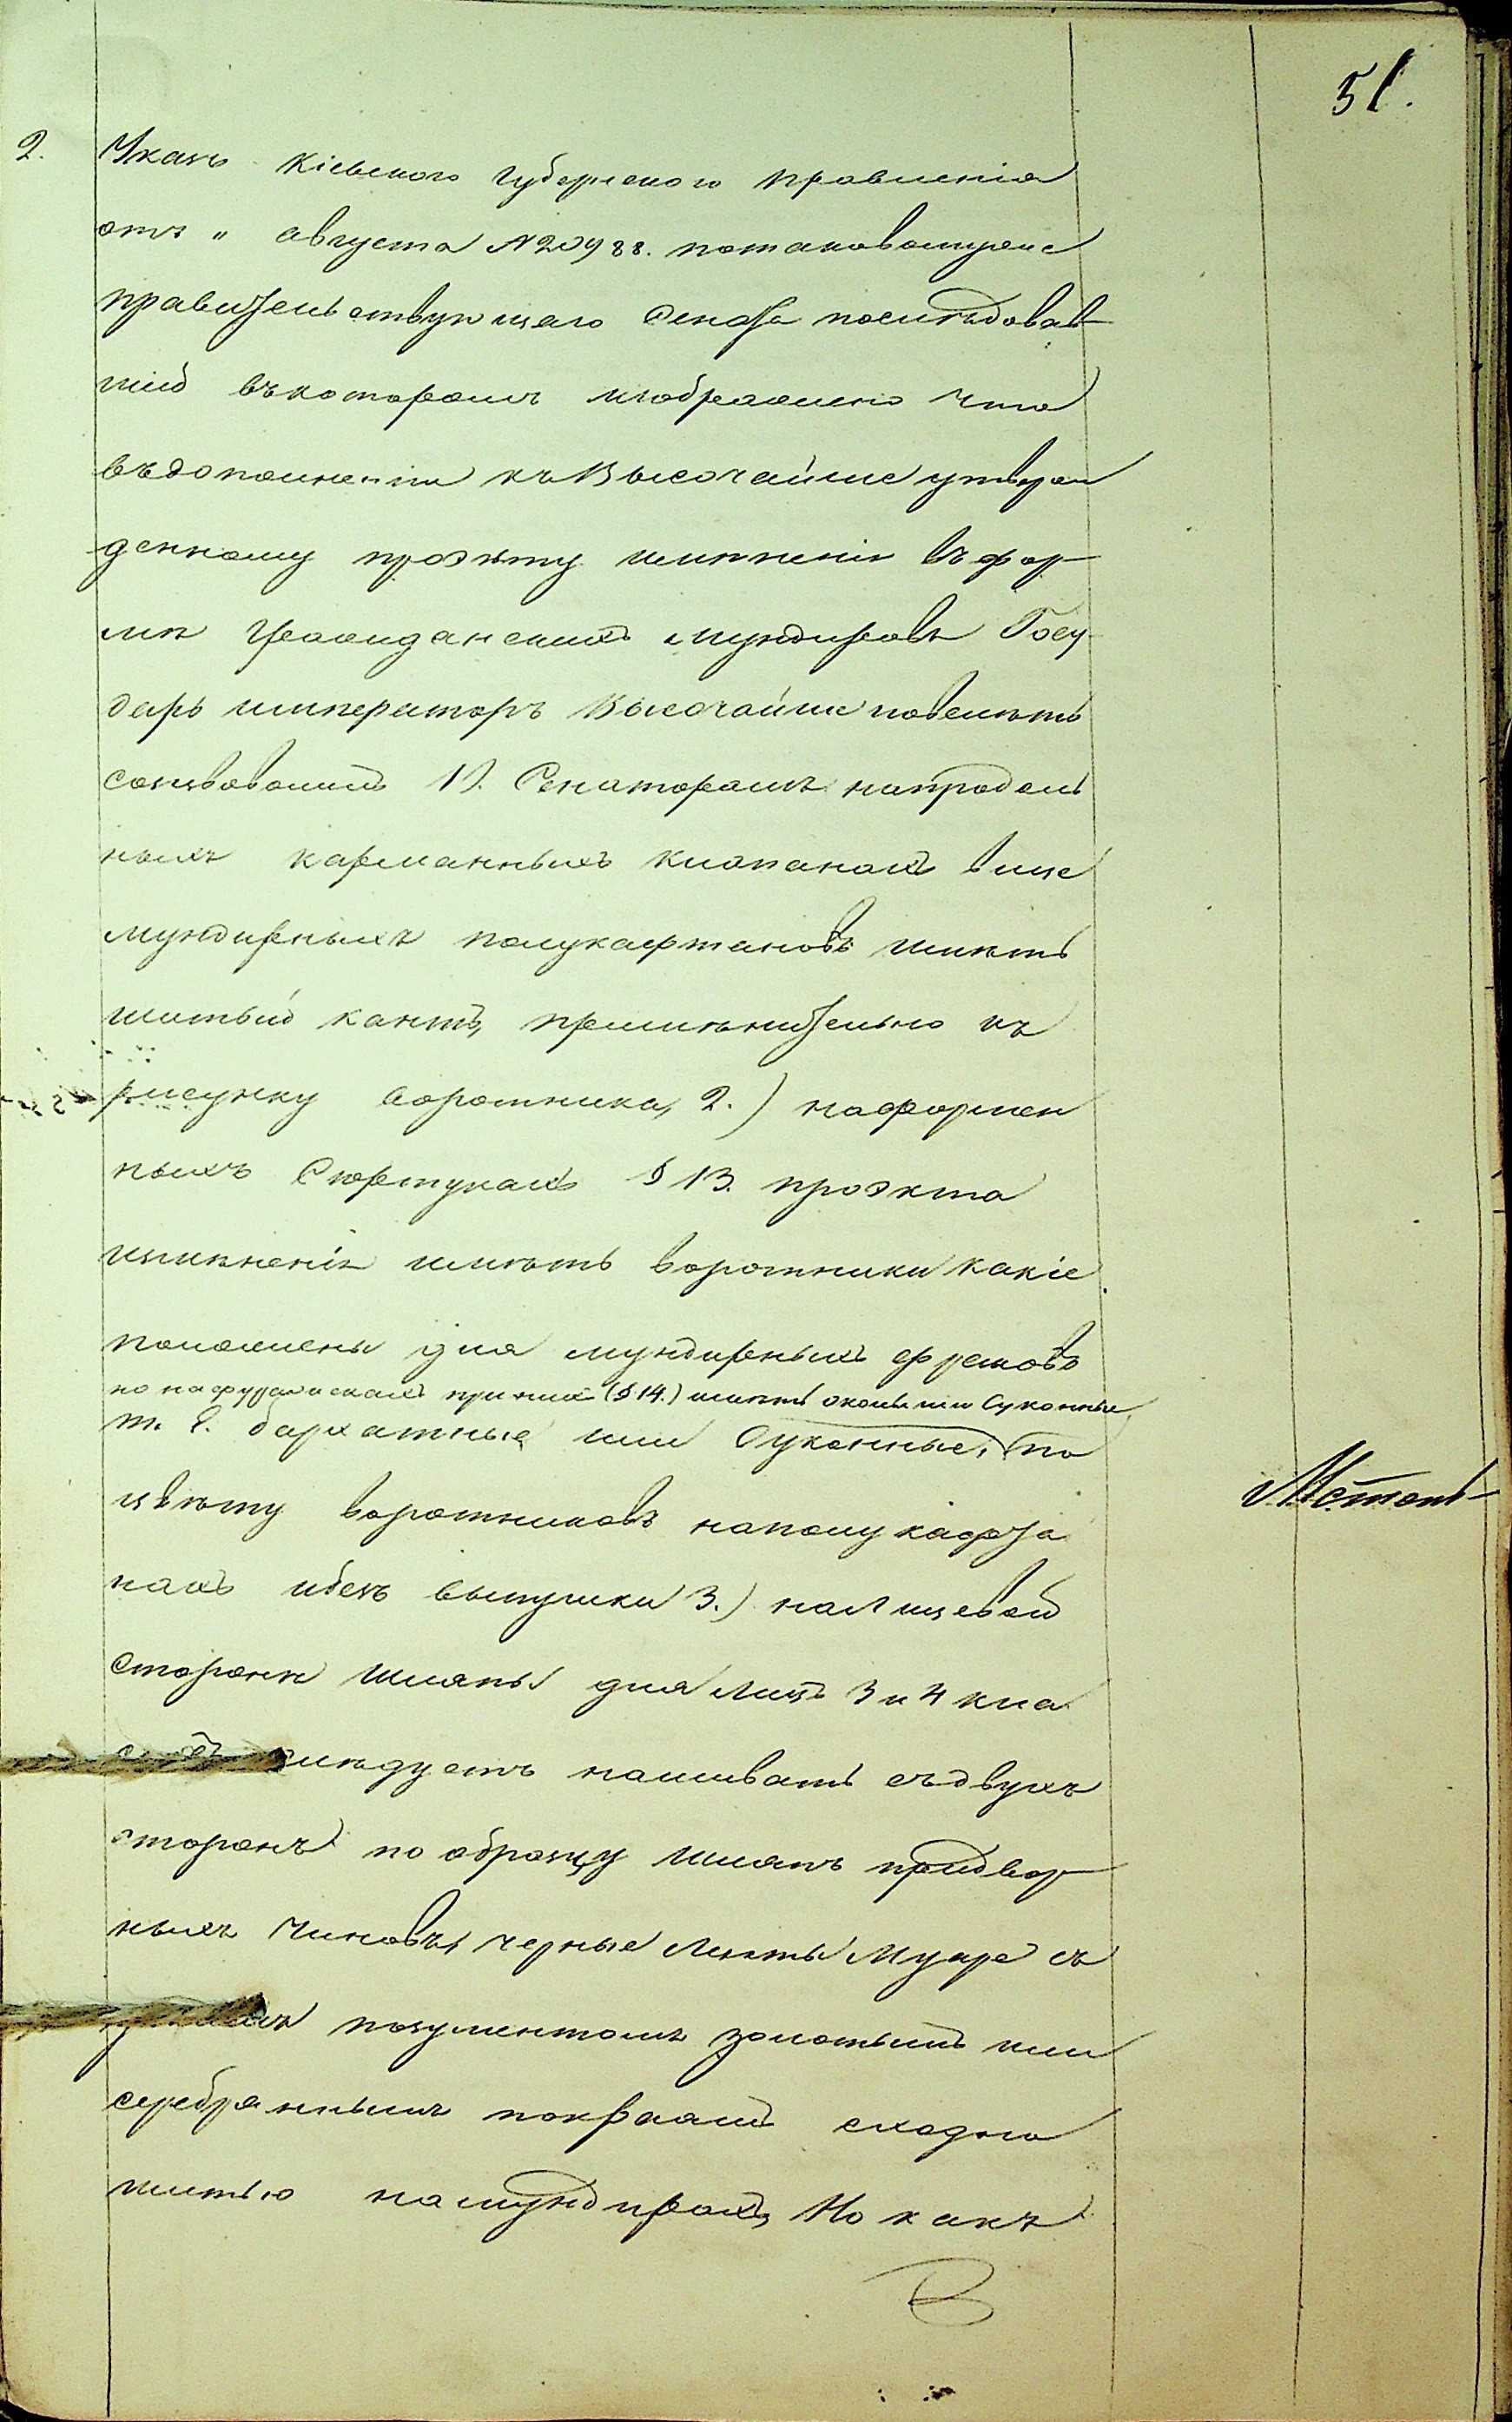 51.
2. Указъ Кіевского Губернского правленія
отъ „ августа N 20988. по таковому же
правительствующаго Сената последовав-
шій въ которомъ изображено что
въ дополненіи къ Высочайше утверж
денному проэкту измененіи въ фор-
мѣ Гражданскихъ мундировъ Госу-
дарь императоръ Высочайше повелѣть
соизволилъ 1). Сенаторамъ на продоль
ныхъ карманныхъ клапанахъ вице
мундирныхъ полукафтановъ имѣть
шитый кантъ, применительно къ
рисунку воротника, 2.) на формен
ныхъ Сюртукахъ § 13. проэкта
измѣненія имѣть воротники какіе
положены для мундирныхъ фраковъ
но на фуражкахъ при нихъ (§ 14.) имѣть околыши Суконные
т. е. бархатные или Суконные, по
цвѣту воротниковъ на полукафта
нахъ и безъ выпушки 3.) на Лицевой
сторонѣ шляпы для лицъ 3 и 4 кла
слѣдуетъ нашивать съ двухъ
сторонъ по образцу шляпъ придвор-
ныхъ Чиновъ, черные ленты Муаре съ
позументомъ золотымъ или
серебряннымъ по краямъ сходно
шитью на мундирахъ, Но какъ